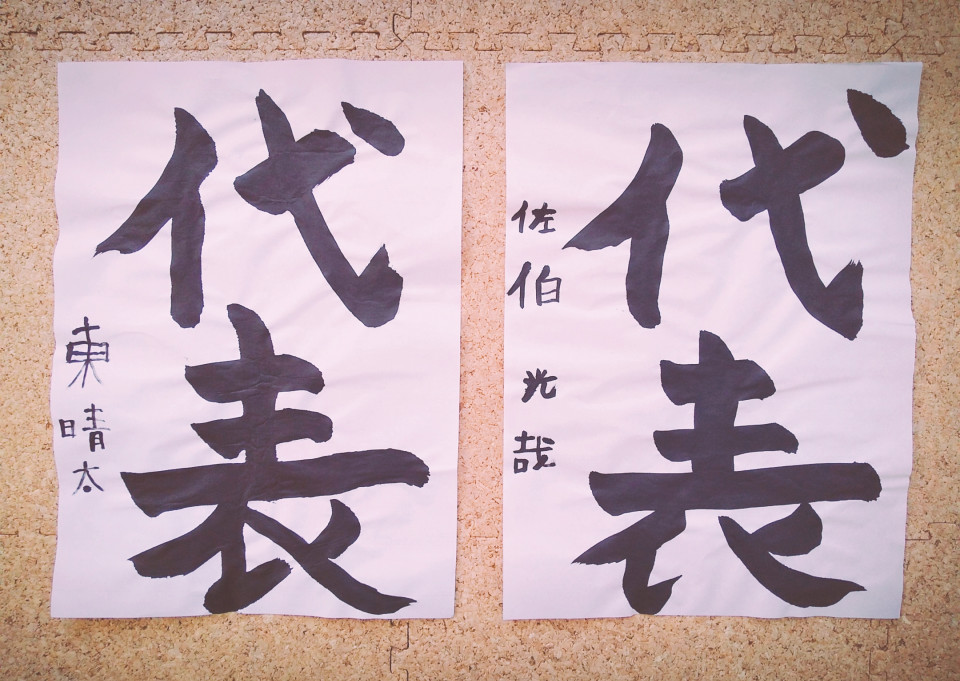 代表
東 晴太
代表
佐伯 光哉